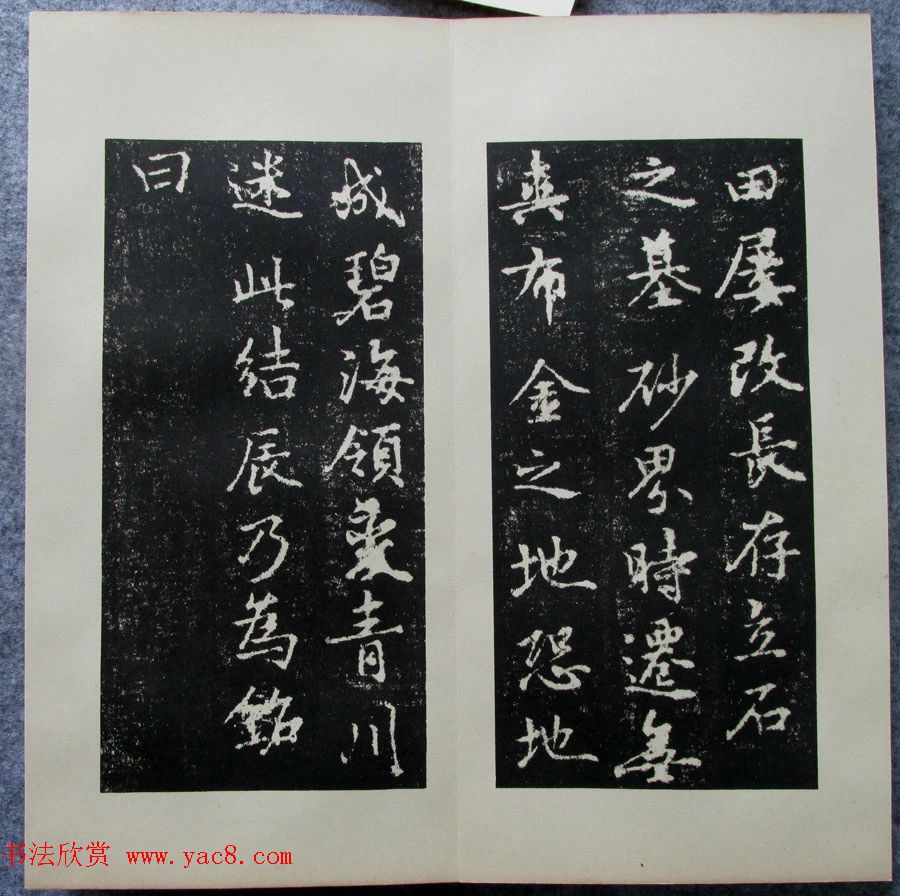 田屢改長存立石
之基砂界時遷無
布金之地恐地
成碧海領變青川
迷此結辰乃為銘
曰
书法欣赏 www.yac8.com